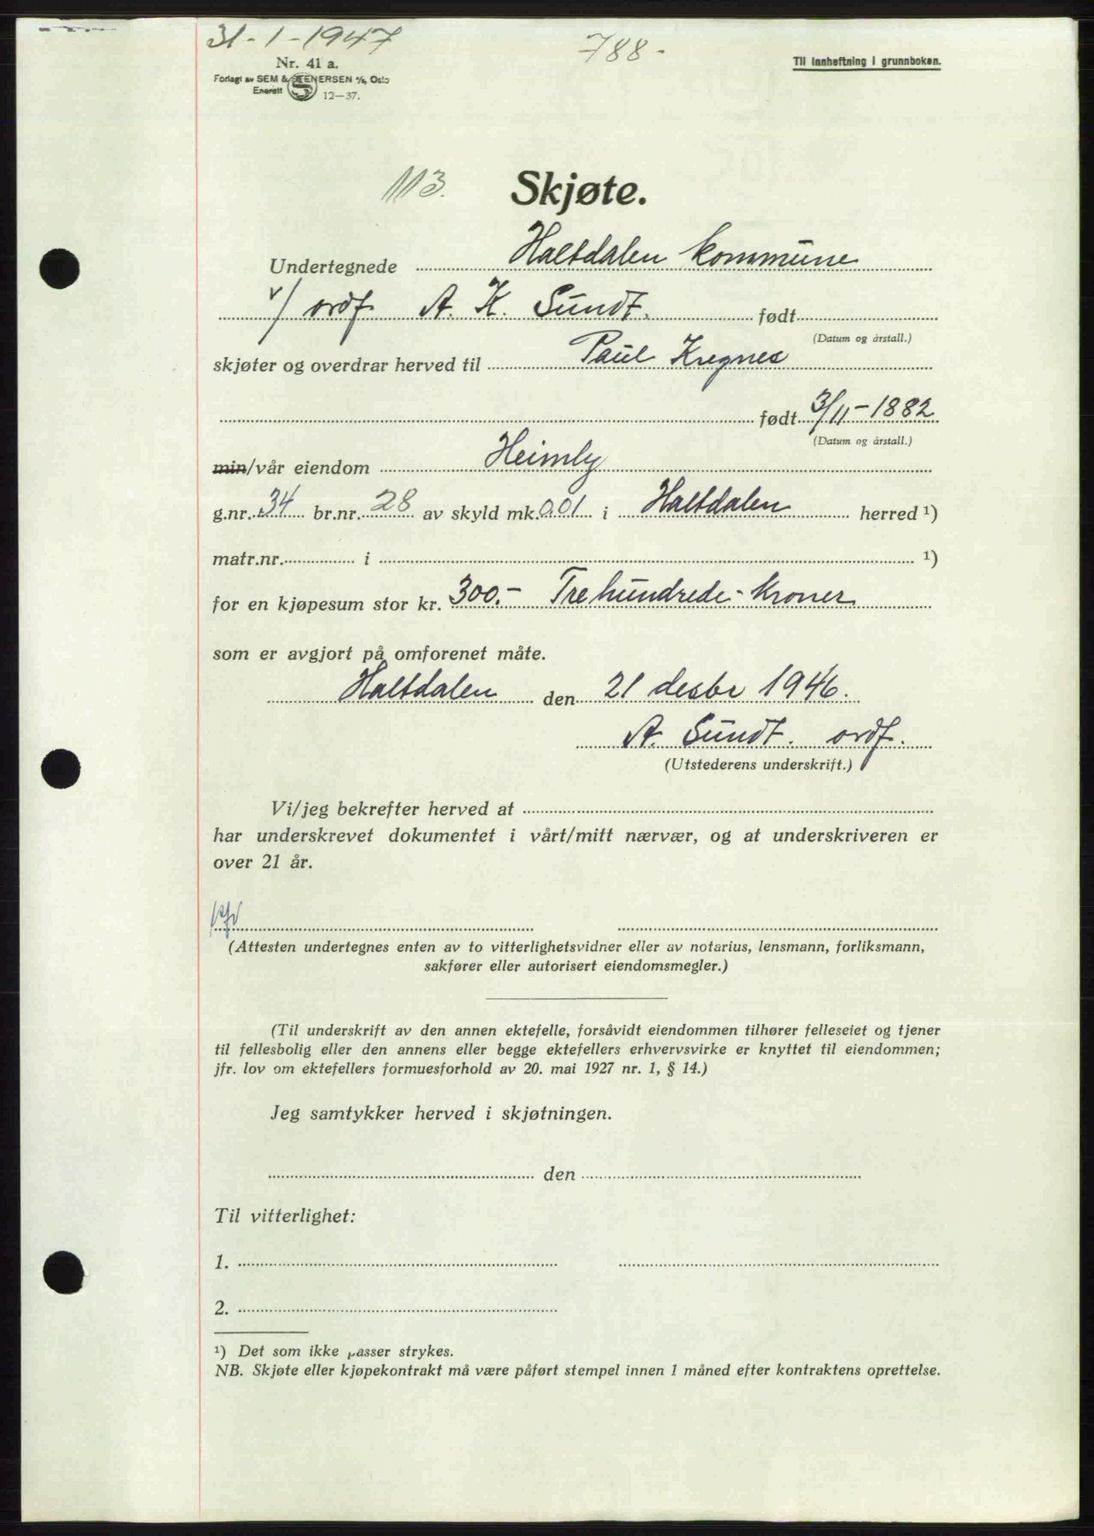 31-1-1947
788-
Nr. 41 a.
Til innheftning i grunnboken.
Forlagt av SEM & STENERSEN A/S, Oslo
Enerett
12—37.
113.
Skjøte.
Undertegnede Haltdalen kommune
v/ ordf. A. K. Sundt. født
(Datum og årstall.)
skjøter og overdrar herved til Paul Kregnes
født 3/11-1882
(Datum og årstall.)
min/vår eiendom Heimly
g.nr. 34 br.nr. 28 av skyld mk. 0,01 i Haltdalen herred ¹)
matr.nr. i ¹)
for en kjøpesum stor kr. 300.- Trehundrede-kroner
som er avgjort på omforenet måte.
Haltdalen den 21 desbr 1946.
A. Sundt. ordf.
(Utstederens underskrift.)
Vi/jeg bekrefter herved at
har underskrevet dokumentet i vårt/mitt nærvær, og at underskriveren er
over 21 år.
(Attesten undertegnes enten av to vitterlighetsvidner eller av notarius, lensmann, forliksmann,
sakfører eller autorisert eiendomsmegler.)
(Til underskrift av den annen ektefelle, forsåvidt eiendommen tilhører felleseiet og tjener
til fellesbolig eller den annens eller begge ektefellers erhvervsvirke er knyttet til eiendommen;
jfr. lov om ektefellers formuesforhold av 20. mai 1927 nr. 1, § 14.)
Jeg samtykker herved i skjøtningen.
den
Til vitterlighet:
1.
2.
¹) Det som ikke passer strykes.
NB. Skjøte eller kjøpekontrakt må være påført stempel innen 1 måned efter kontraktens oprettelse.